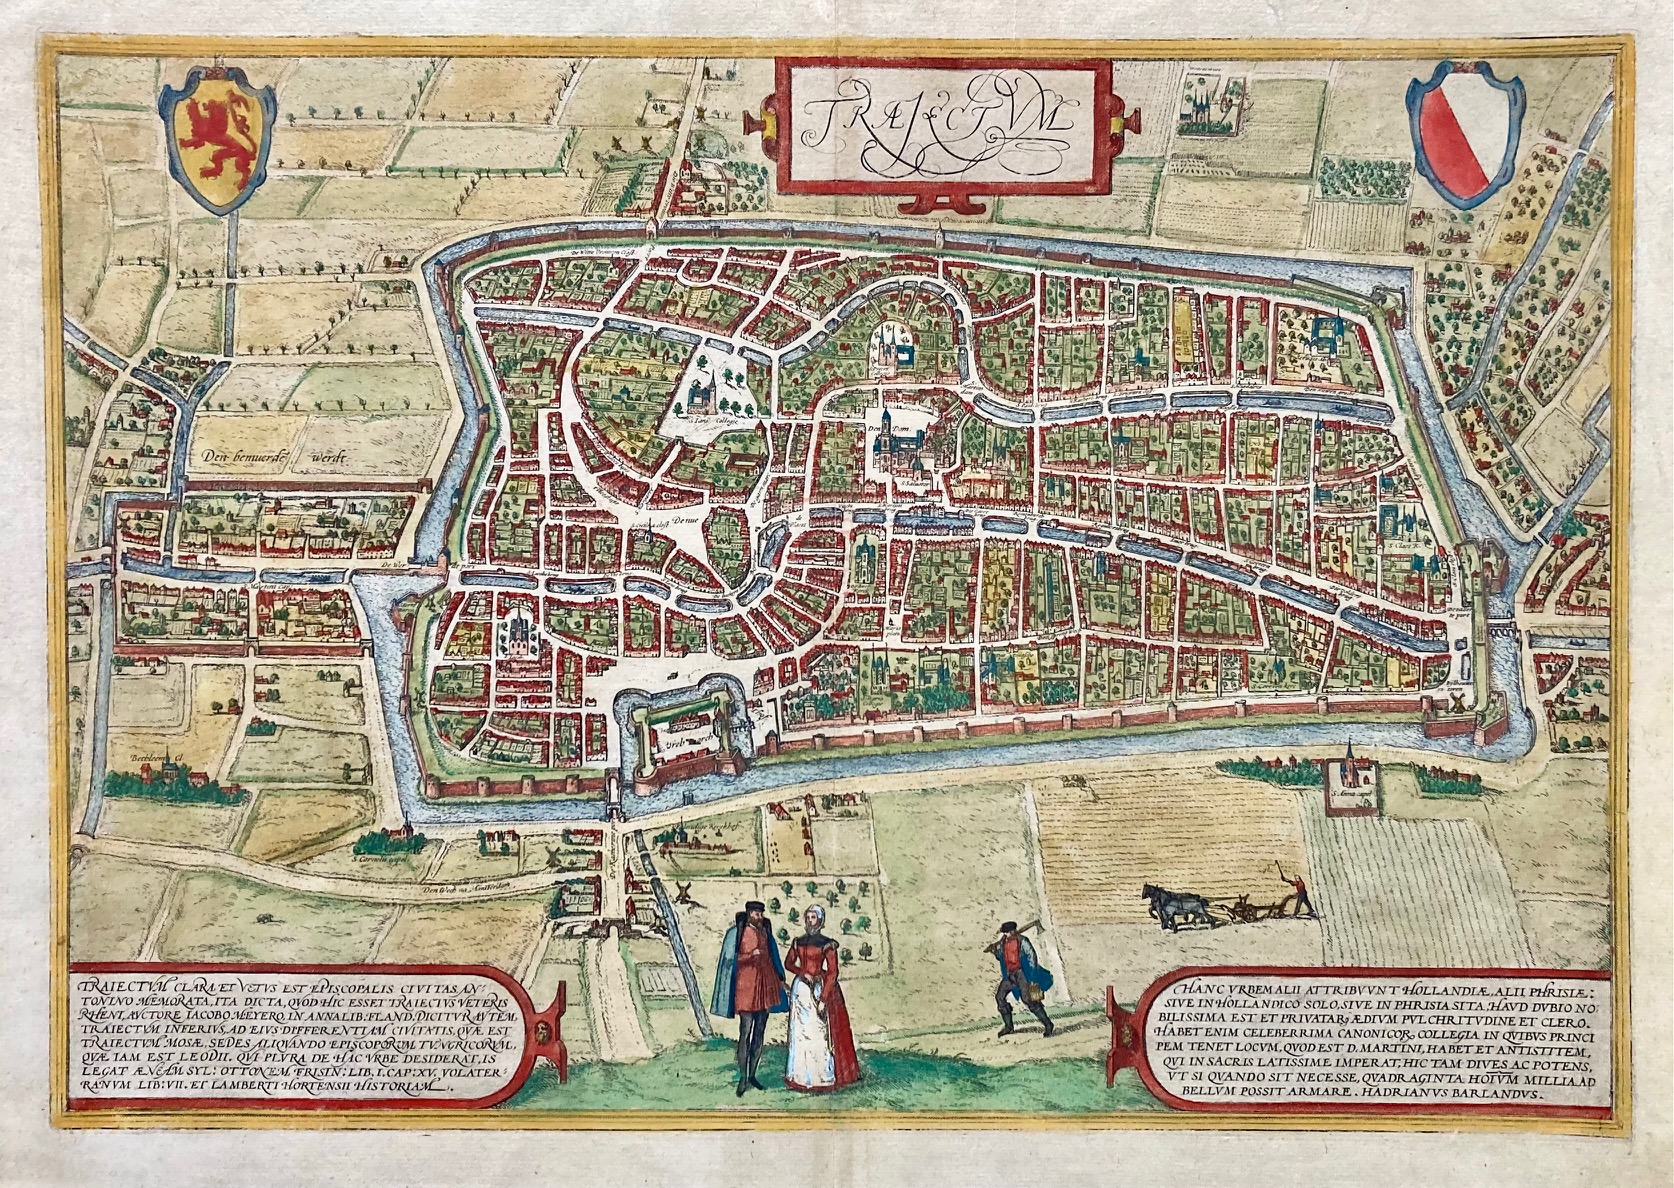 TRAJECTVM
De Witte Vrouwen
S Jans Collegie
Den Dom
S. Salvator
Den benuerde werdt
De nue
De Wer
de port
S Clare
Vreborch
Bethleem Cl
S Anna capel
S Cornelis capel
Den Wech na Amsterdam
TRAIECTVM CLARA ET VETVS EST EPISCOPALIS CIVITAS AN-
TONINO MEMORATA, ITA DICTA, QVOD HIC ESSET TRAIECTVS VETERIS
RHENI, AVCTORE IACOBO MEYERO, IN ANNALIB: FLAND, DICITVR AVTEM,
TRAIECTVM INFERIVS, AD EIVS DIFFERENTIAM CIVITATIS, QVÆ EST
TRAIECTVM MOSÆ, SEDES ALIQVANDO EPISCOPORVM TVNGRICORVM,
QVÆ IAM EST LEODII. QVI PLVRA DE HAC VRBE DESIDERAT, IS
LEGAT ÆNEAM SYL: OTTONEM, FRISIN: LIB, I. CAP: XV, VOLATER-
RANVM LIB: VII. ET LAMBERTI HORTENSII HISTORIAM.
HANC VRBEM ALII ATTRIBVVNT HOLLANDIÆ, ALII, PHRISIÆ:
SIVE IN HOLLANDICO SOLO, SIVE IN PHRISIA SITA, HAVD DVBIO NO
BILISSIMA EST ET PRIVATAR, ÆDIVM PVLCHRITVDINE ET CLERO.
HABET ENIM CELEBERRIMA CANONICOR, COLLEGIA IN QVIBVS PRINCI
PEM TENET LOCVM, QVOD EST D. MARTINI, HABET ET ANTISTITEM,
QVI IN SACRIS LATISSIME IMPERAT, HIC TAM DIVES AC POTENS,
VT SI QVANDO SIT NECESSE, QVADRAGINTA HOIVM MILLIA AD
BELLVM POSSIT ARMARE. HADRIANVS BARLANDVS.